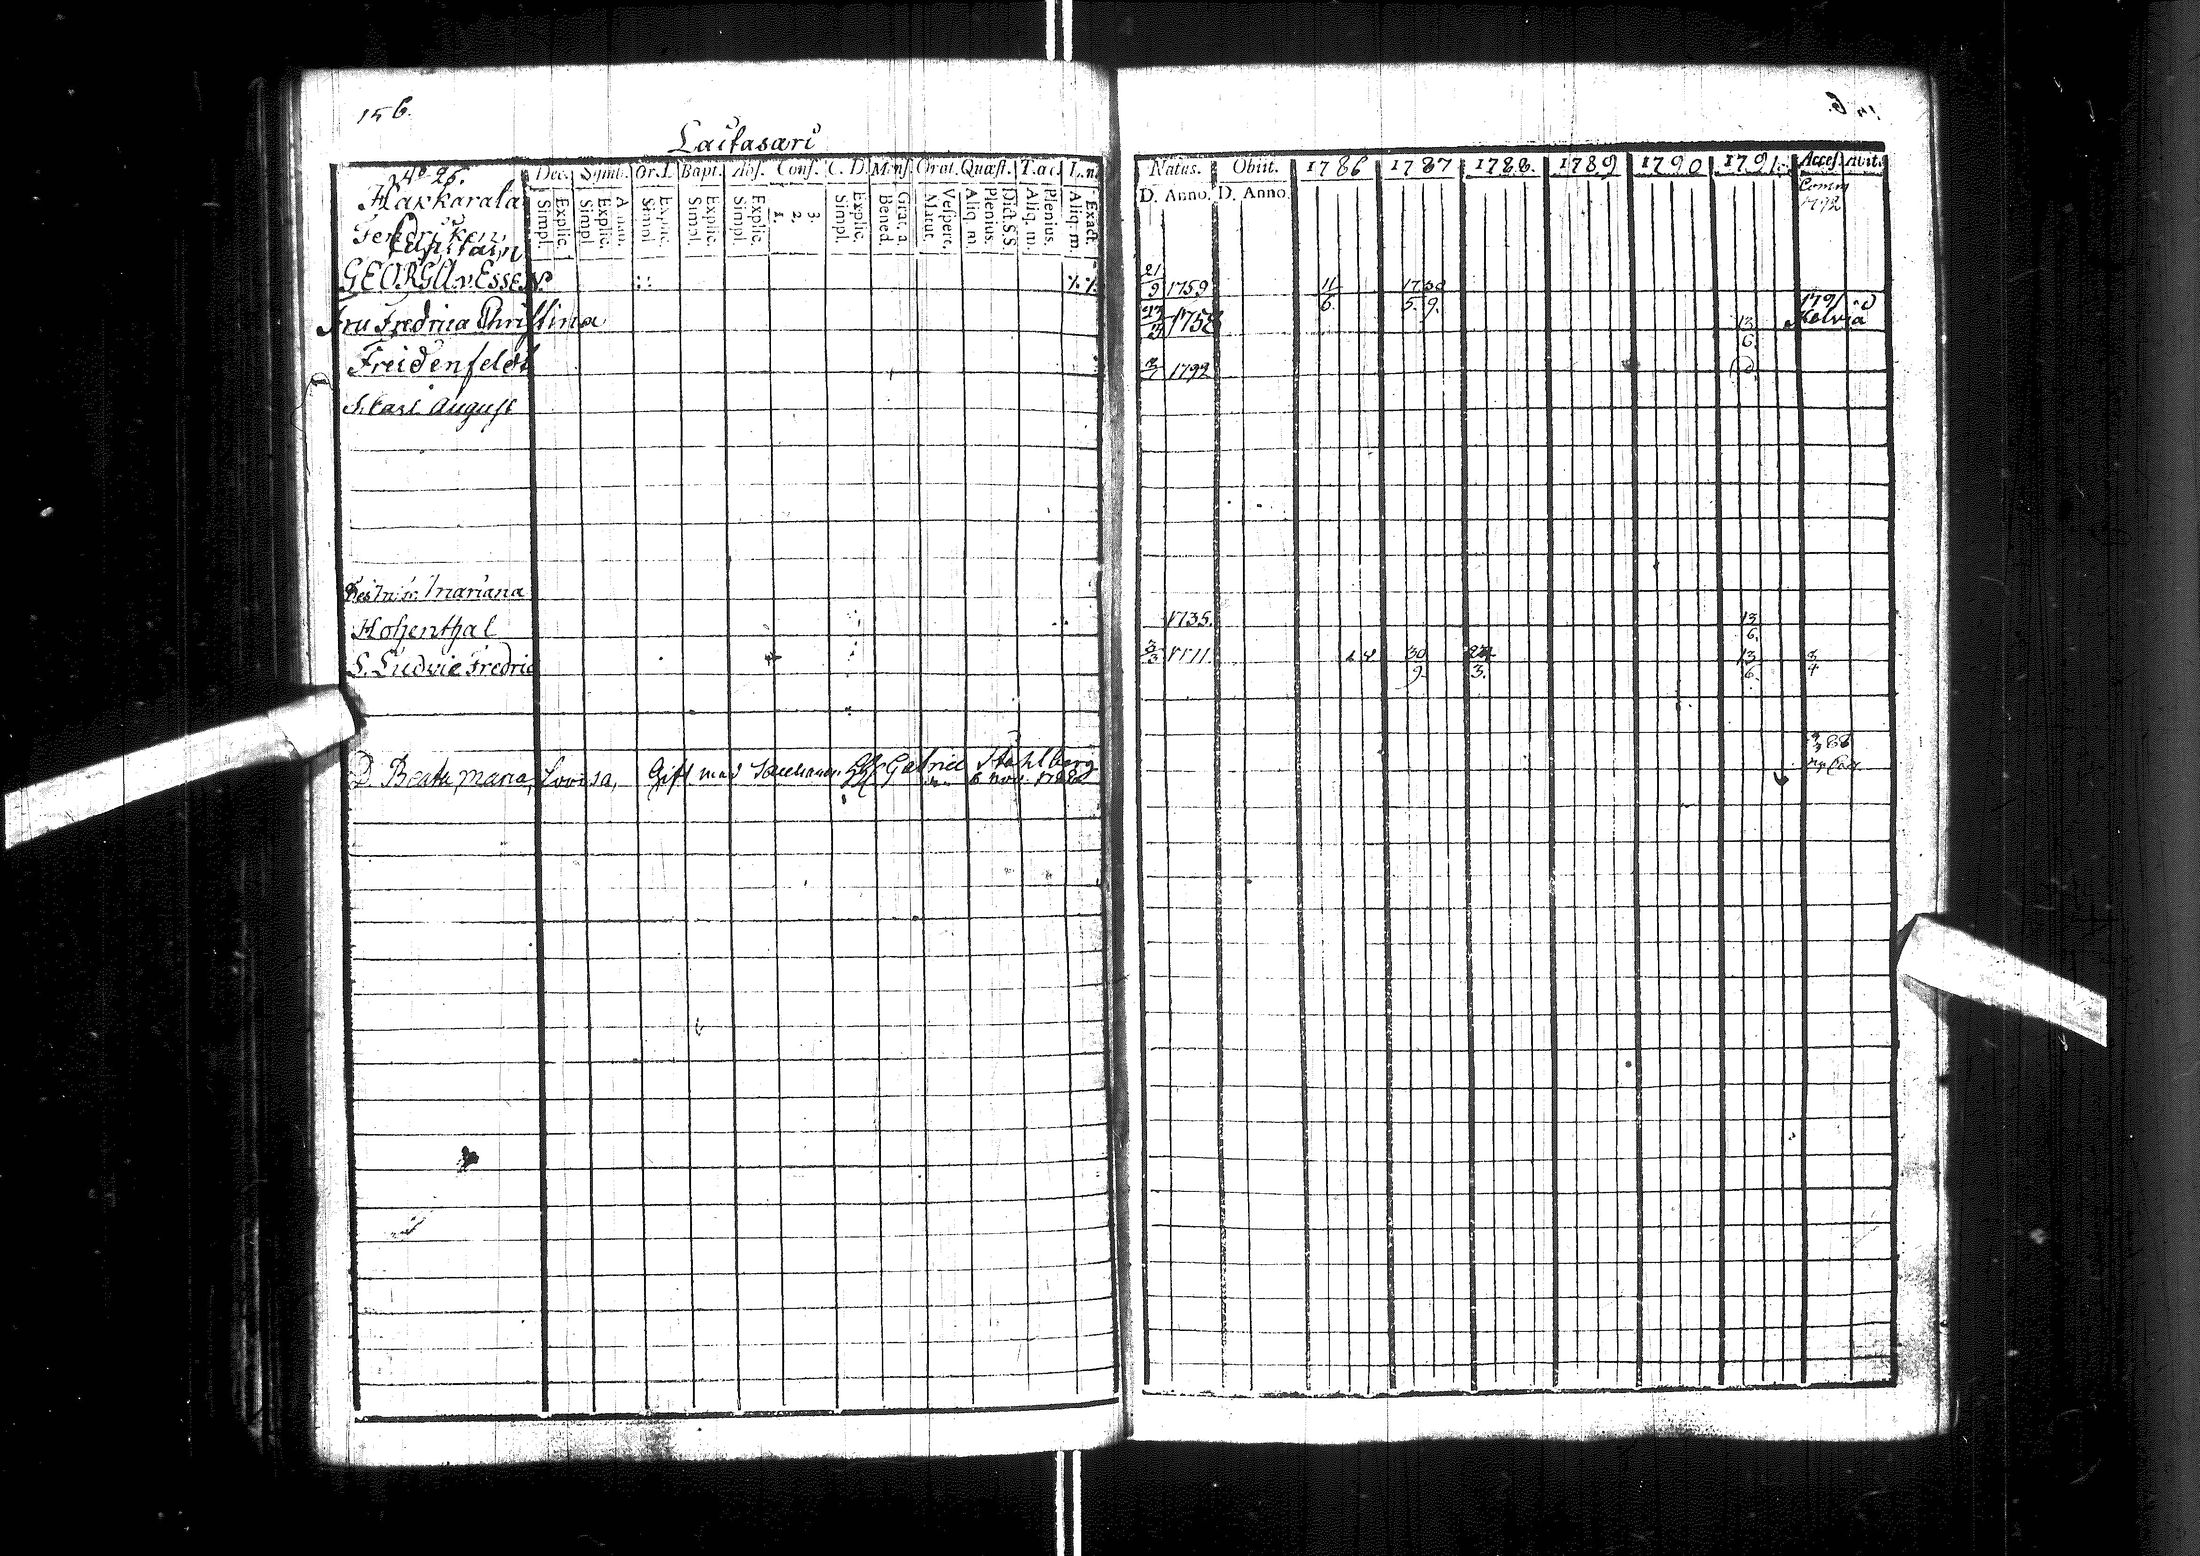 156.
Laitasari
No 25.
Haskarala
Dec. Symb. Or.D. Bapt. Abs. Conf. C. D. Mens. Orat. Quæst. T.ac. L.n.
Explic. Simpl. Athan. Explic. Simpl. Explic. Simpl. Explic. Simpl. Explic. Simpl. 3. 2. 1. Explic. Simpl. Grat. a. Bened. Vespert. Matut. Dict.S.S. Plenius. Aliq. m. Plenius. Aliq. m. Exact. Aliq. m.
Capitain
GEORG A v Essen
Fru Fredrica Christina
Freidenfeldt
S. Carl August
Mariana
Hohenthal
S. Ludvic Fredric
D. Beata Maria Lovisa, Gift med Gabriel Stahlberg
6 nov. 1788
Natus. Obiit. 1786 1787 1788. 1789 1790 1791. Access. Abit.
D. Anno. D. Anno.
Comm
1792
21/9 1759 11/6. 17 30 5. 9.
1758 13/6. 1791
Kelviå
1792
1735. 13/6.
3/3 1771 30/9. 3. 13/6. 3/4
88